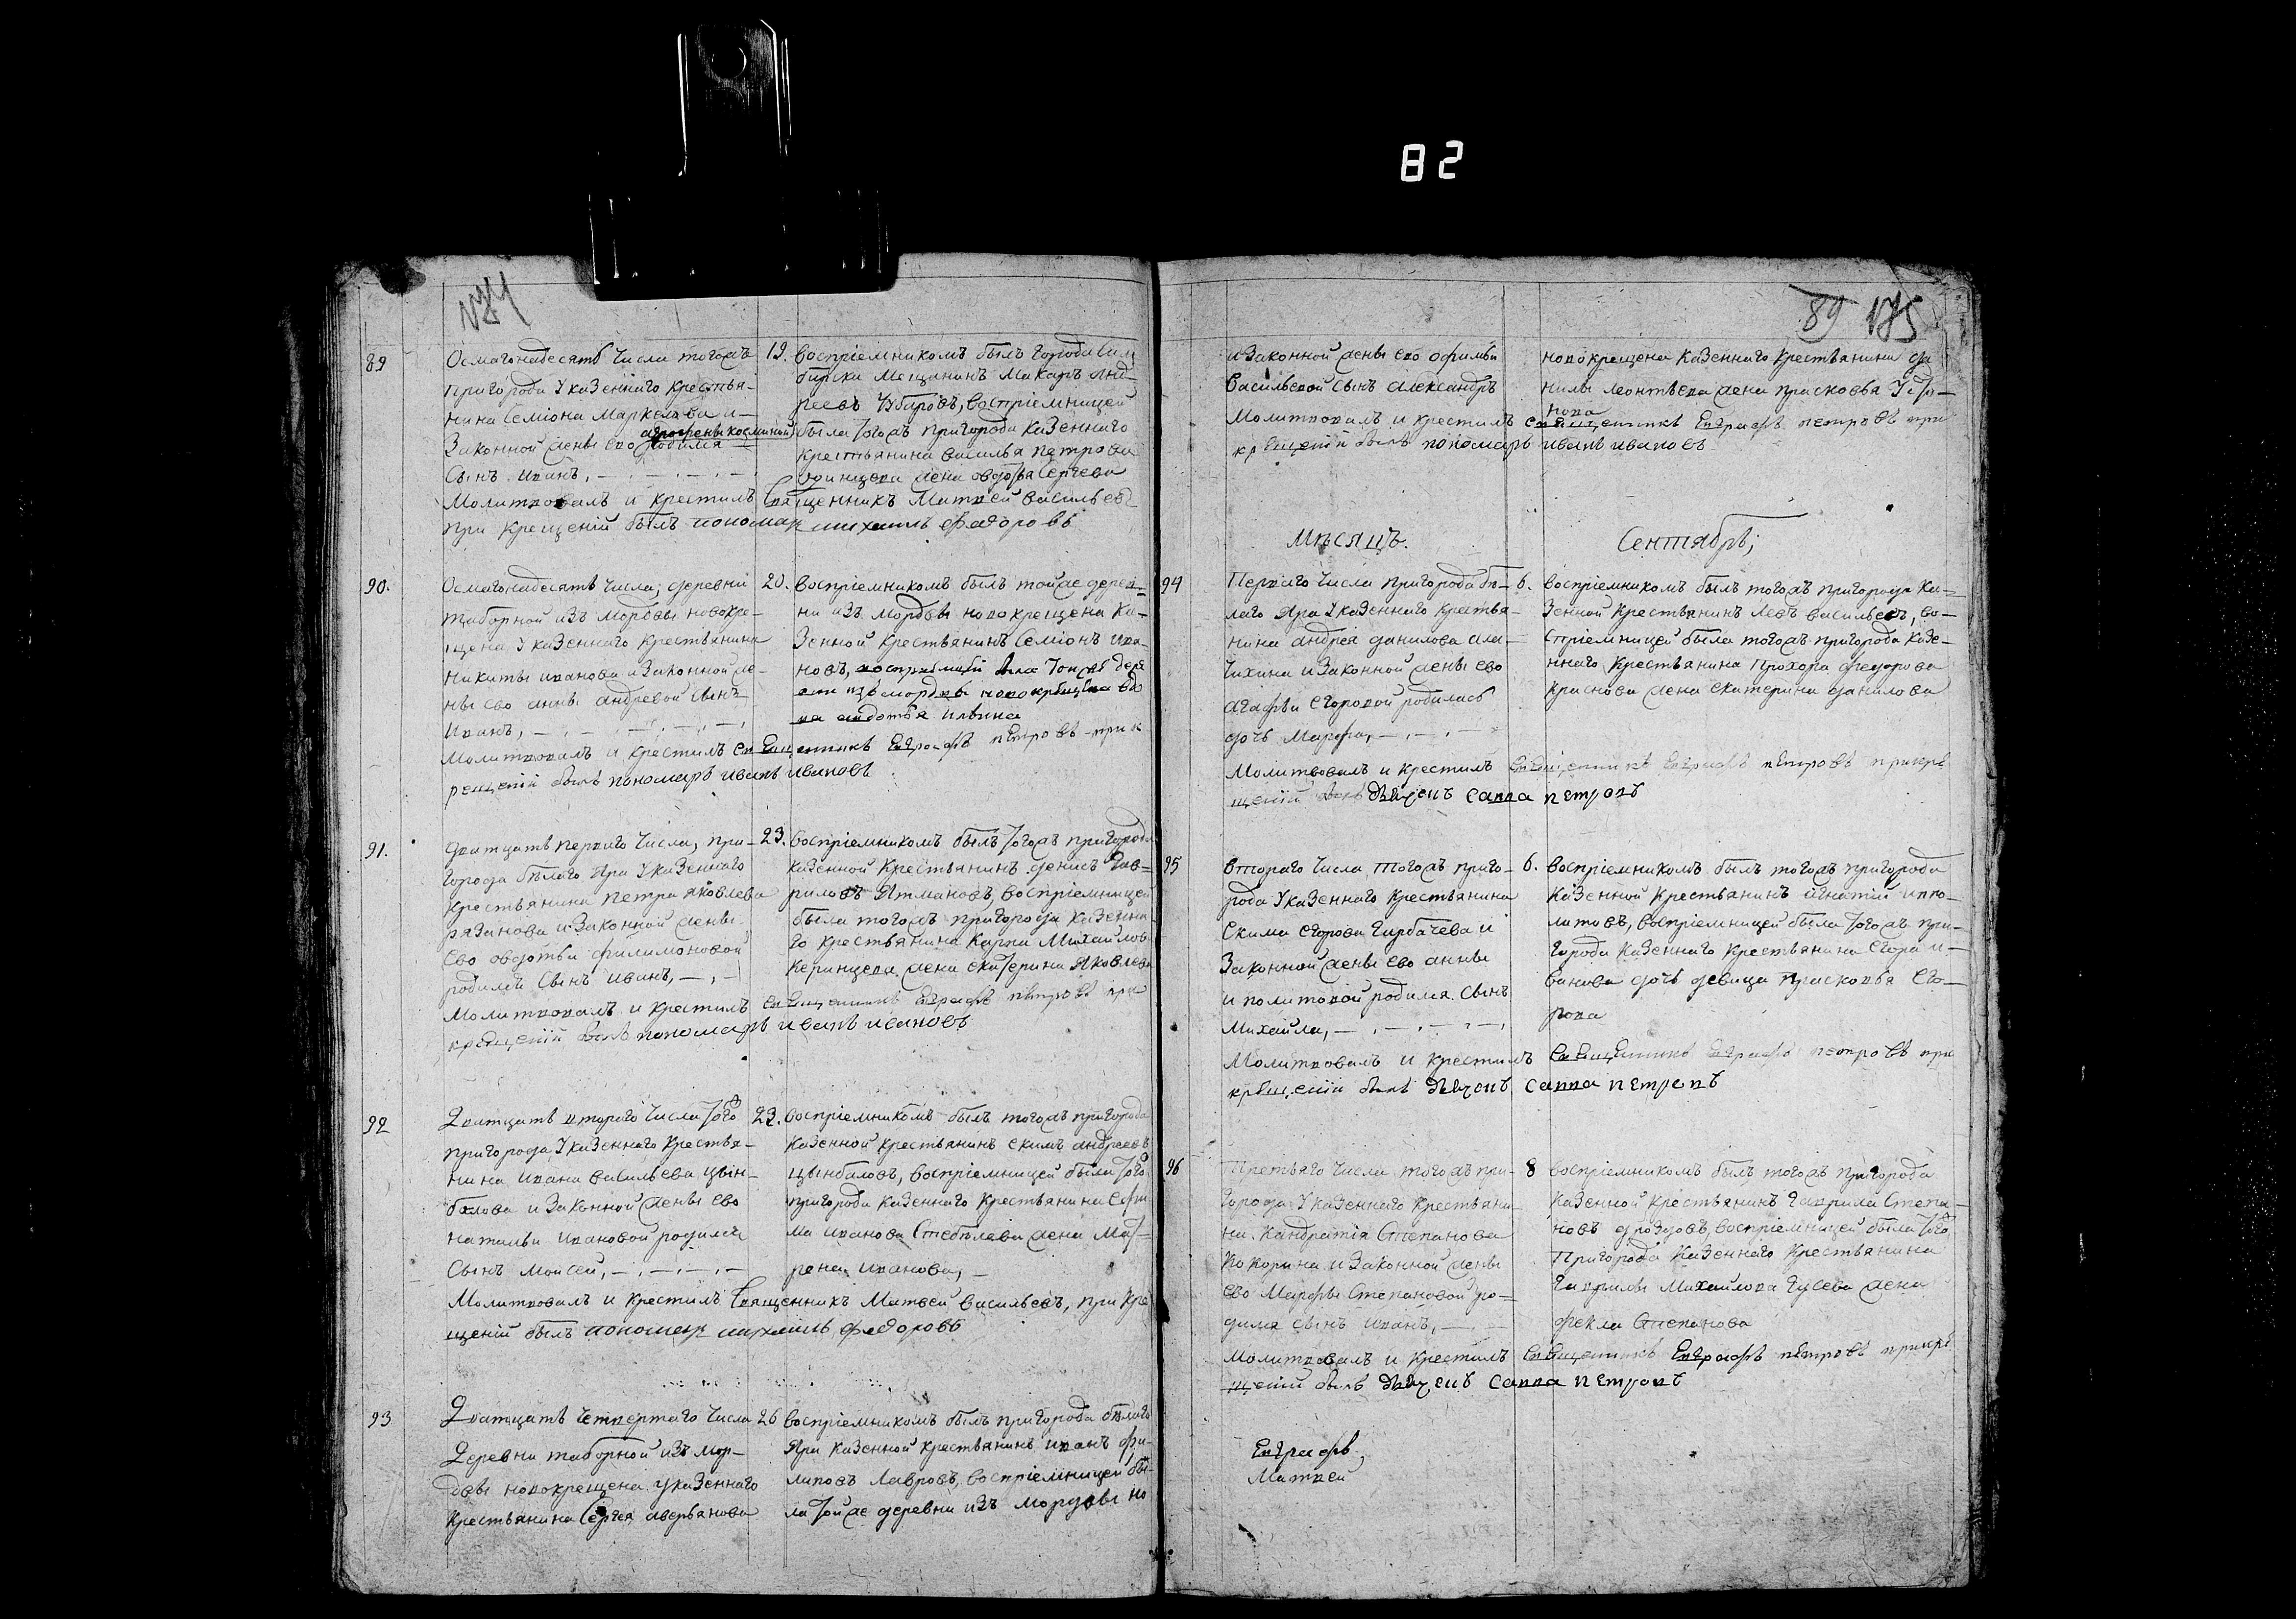 82
174
89
Осмагонадесять числа тогожъ
пригорода У казеннаго крестья-
нина Семіона Маркелова и
законной жены ево агрофены косминой родился
Сынъ Иванъ,
19. воспріемникомъ былъ города Сим
бирска мещанинъ Макаръ Анд-
реевъ Чубаровъ, воспріемницей
была тогожъ пригорода казеннаго
крестьянина василья петрова
жена овдотья Сергеева
Молитвовалъ и крестилъ Священникъ Матвей васильевъ
при крещеній былъ пономарь михаилъ федоровъ
90.
Осмагонадесять числа, деревни
таборной изъ мордвы новокре-
щена У казеннаго крестьянина
никиты иванова и законной же-
ны ево анны андревой сынъ
Иванъ,
20. воспріемникомъ былъ тойже дерев-
ни изъ мордвы новокрещена ка-
зенной крестьянинъ Семіонъ ива-
новъ, воспріемницей была тойже дере
вни изъ мордвы новокрещена вдо
ва авдотья ильина
Молитвовалъ и крестилъ священникъ Евграфъ петровъ при к
рещеній былъ пономарь иванъ ивановъ
91.
дватцать перваго числа, при-
города белаго Яра У казеннаго
крестьянина петра яковлева
рязанова и законной жены
ево овдотьи филимоновой
родился сынъ иванъ,
23. воспріемникомъ былъ тогожъ пригорода
казенной крестьянинъ денисъ Гав-
риловъ Ятмановъ, воспріемницей
была тогожъ пригорода казенна-
го крестьянина карпа Михайлова
жена екатерина Яковлева
Молитвовалъ и крестилъ священникъ Евграфъ петровъ при
крещеній былъ пономарь иванъ ивановъ
92
Дватцать втораго числа того ж
пригорода У казеннаго крестья-
нина ивана васильева цын-
балова и законной жены ево
натальи ивановой родился
Сынъ Моисей,
23. воспріемникомъ былъ тогожъ пригорода
казенной крестьянинъ екимъ андреевъ
цынбаловъ, воспріемницей была того ж
пригорода казеннаго крестьянина ефи
ма иванова Стебелева жена мат-
рена иванова,
Молитвовалъ и крестилъ Священникъ Матвей васильевъ, при кре
щеній былъ пономарь михаилъ федоровъ
93
Дватцать четвертаго числа
Деревни таборной изъ мор-
двы новокрещена У казеннаго
крестьянина Сергея аверьянова
26 воспріемникомъ былъ пригорода белаго
Яра казенной крестьянинъ иванъ фи-
липовъ лавровъ, воспріемницей бы-
ла тойже деревни изъ мордвы но
89 175
и законной жены ево офимьи
васильевой сынъ александръ
новокрещена казеннаго крестьянина да
нилы леонтьева жена прасковья
Молитвовалъ и крестилъ священникъ Евграфъ петровъ при
крещеній былъ пономарь иванъ ивановъ
Месяцъ. Сентябрь;
94
Перваго числа пригорода бе-
лаго Яра У казеннаго крестья-
нина андрея данилова ала-
чихина и законной жены ево
агафьи егоровой родилась
дочь Марфа,
6. воспріемникомъ былъ тогожъ пригорода ка-
зенной крестьянинъ левъ васильевъ, во-
спріемницей была тогожъ пригорода казе-
ннаго крестьянина прохора федорова
краснова жена екатерина данилова
Молитвовалъ и крестилъ священникъ Евграфъ петровъ прикре
щеній былъ дьячекъ савва петровъ
95
втораго числа тогожъ приго-
рода У казеннаго крестьянина
екима егорова Гарбачева и
законной жены ево анны
иполитовой родился сынъ
Михайла,
6. воспріемникомъ былъ тогожъ пригорода
казенной крестьянинъ игнатій иппо-
литовъ, воспріемницей была тогожъ при-
города казеннаго крестьянина егора и-
ванова дочь девица прасковья его-
рова
Молитвовалъ и крестилъ священникъ Евграфъ петровъ при
крещеніи былъ дьячекъ савва петровъ
96
Третьяго числа тогожъ при-
города У казеннаго крестьяни-
на Кандратія Степанова
Кокорина и законной жены
ево Марфы Степановой ро-
дился сынъ иванъ,
8 воспріемникомъ былъ тогожъ пригорода
казенной крестьянинъ Гаврила Степа-
новъ дроздовъ, воспріемницей была того ж
Пригорода казеннаго крестьянина
Гаврилы Михайлова Гусева жена
фекла Степанова
Молитвовалъ и крестилъ священникъ Евграфъ петровъ прикре
щеніи былъ дьячекъ савва петровъ
Евграфъ,
Матвей